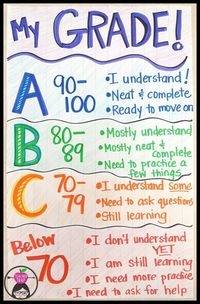 My GRADE!
A 90-
100
•I understand!
•Neat & complete
•Ready to move on
B 80-
89
•Mostly understand
•Mostly neat &
complete
•Need to practice a
few things
C 70-
79
•I understand some
•Need to ask questions
•Still learning
Below
70
•I don't understand
YET
•I am still learning
•I need more practice
•I need to ask for help